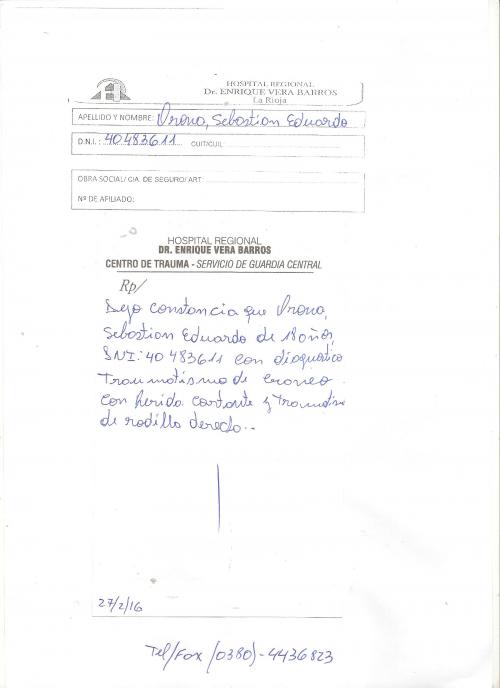 HOSPITAL REGIONAL
Dr. ENRIQUE VERA BARROS
La Rioja
APELLIDO Y NOMBRE: Orona, Sebastian Eduardo
D.N.I.: 40483611 CUIT/CUIL:
OBRA SOCIAL/ CIA. DE SEGURO/ ART:
Nº DE AFILIADO:
HOSPITAL REGIONAL
DR. ENRIQUE VERA BARROS
CENTRO DE TRAUMA - SERVICIO DE GUARDIA CENTRAL
Rp/
Dejo constancia que Orona,
Sebastian Eduardo de 18 años,
DNI: 40 483611 con diagnostico
Traumatismo de Craneo
con herida cortante y
de rodilla derecha..
27/2/16
Tel/Fax (0380)-4436823